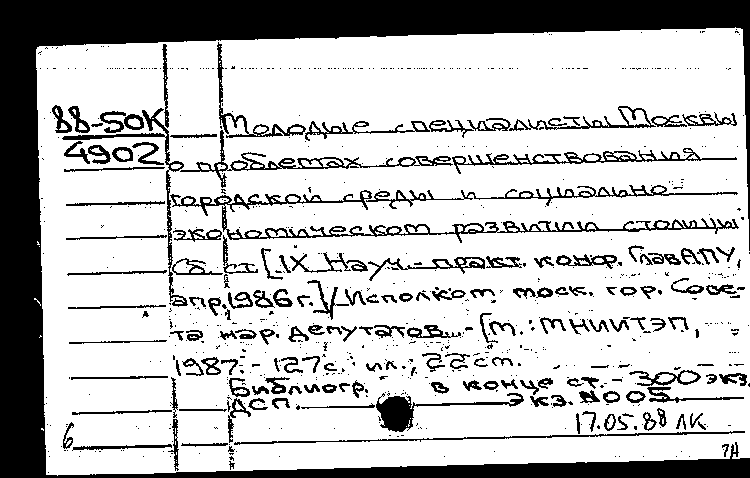 88-50К
4902
Молодые специалисты Москвы
о проблемах совершенствования
городской среды и социально-
экономическом развитии столицы:
Сб. ст. [IX Науч.-практ. конф. ГлавАПУ,
апр. 1986 г.] / Исполком моск. гор. Сове-
та нар. депутатов. - [М.: МНИИТЭП,
1987. - 127 с.: ил.; 22 см.
Библиогр. в конце ст. - 300 экз.
ДСП. Экз. № 005.
17.05.88 ЛК
6